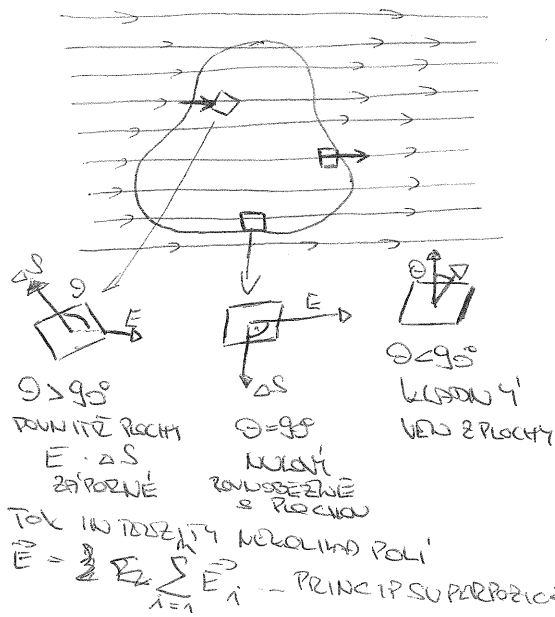 ΔS Θ E
Θ > 90°
DOVNITŘ PLOCHY
E · ΔS
ZÁPORNÉ
E
ΔS
Θ = 90°
NULOVÝ
ROVNOBĚŽNĚ
S PLOCHOU
Θ
Θ < 90°
KLADNÝ
VEN Z PLOCHY
TOK INTENZITY NĚKOLIKA POLÍ
E⃗ = Σ E⃗i – PRINCIP SUPERPOZICE
i=1